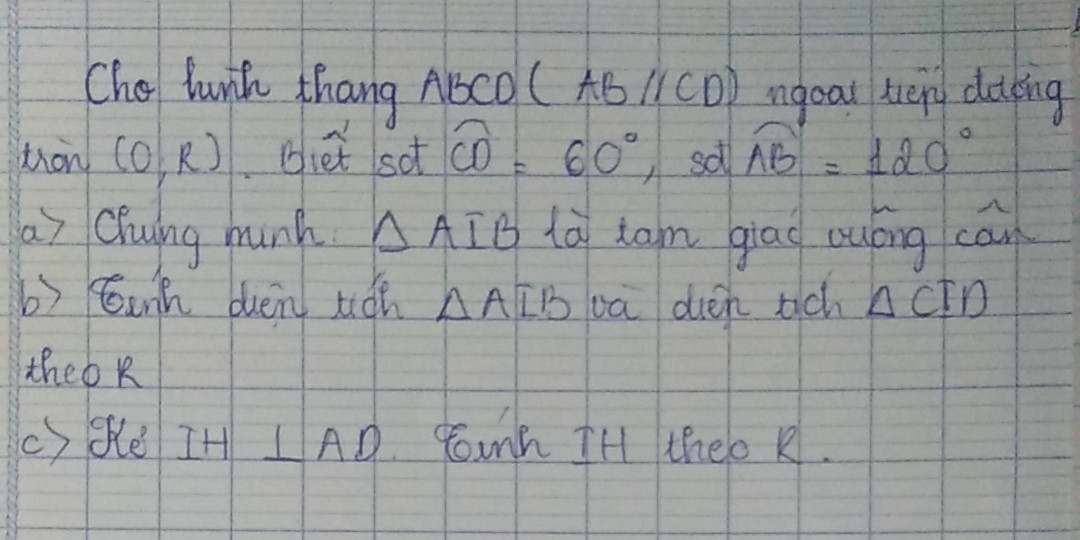 Cho hình thang ABCD ( AB // CD) ngoại tiếp đường
tròn (O, R). Biết sđ CD = 60°, sđ AB = 120°
a> Chứng minh: Δ AIB là tam giác vuông cân
b> Tính diện tích Δ AIB và diện tích Δ CID
theo R
c> Kẻ IH ⊥ AD. Tính IH theo R.